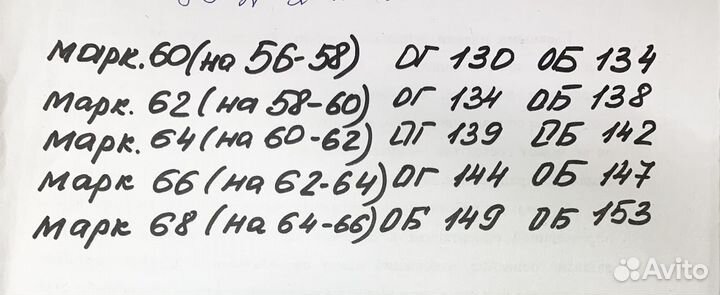 марк. 60 (на 56-58) ОГ 130 ОБ 134
марк. 62 (на 58-60) ОГ 134 ОБ 138
марк. 64 (на 60-62) ОГ 139 ОБ 142
марк 66 (на 62-64) ОГ 144 ОБ 147
марк 68 (на 64-66) ОБ 149 ОБ 153
Avito